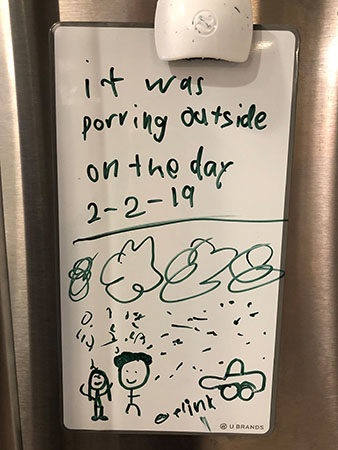 it was
porring outside
on the day
2-2-19
plink
U BRANDS